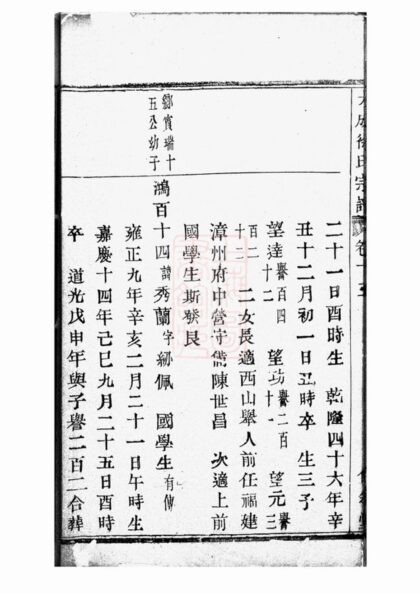 徐氏宗譜
二十一日酉時生 乾隆四十六年辛
丑十二月初一日丑時卒 生三子
望達譽百四十二 望功譽二百十一 望元譽三百二十二
二女長適西山舉人前任福建
漳州府中營守備陳世昌 次適上前
國學生斯發良
鄉賓瑞十五公幼子
鴻百十四諱秀蘭字紉佩 國學生有傳
雍正九年辛亥二月二十一日午時生
嘉慶十四年己巳九月二十五日酉時
卒 道光戊申年與子譽二百二合葬